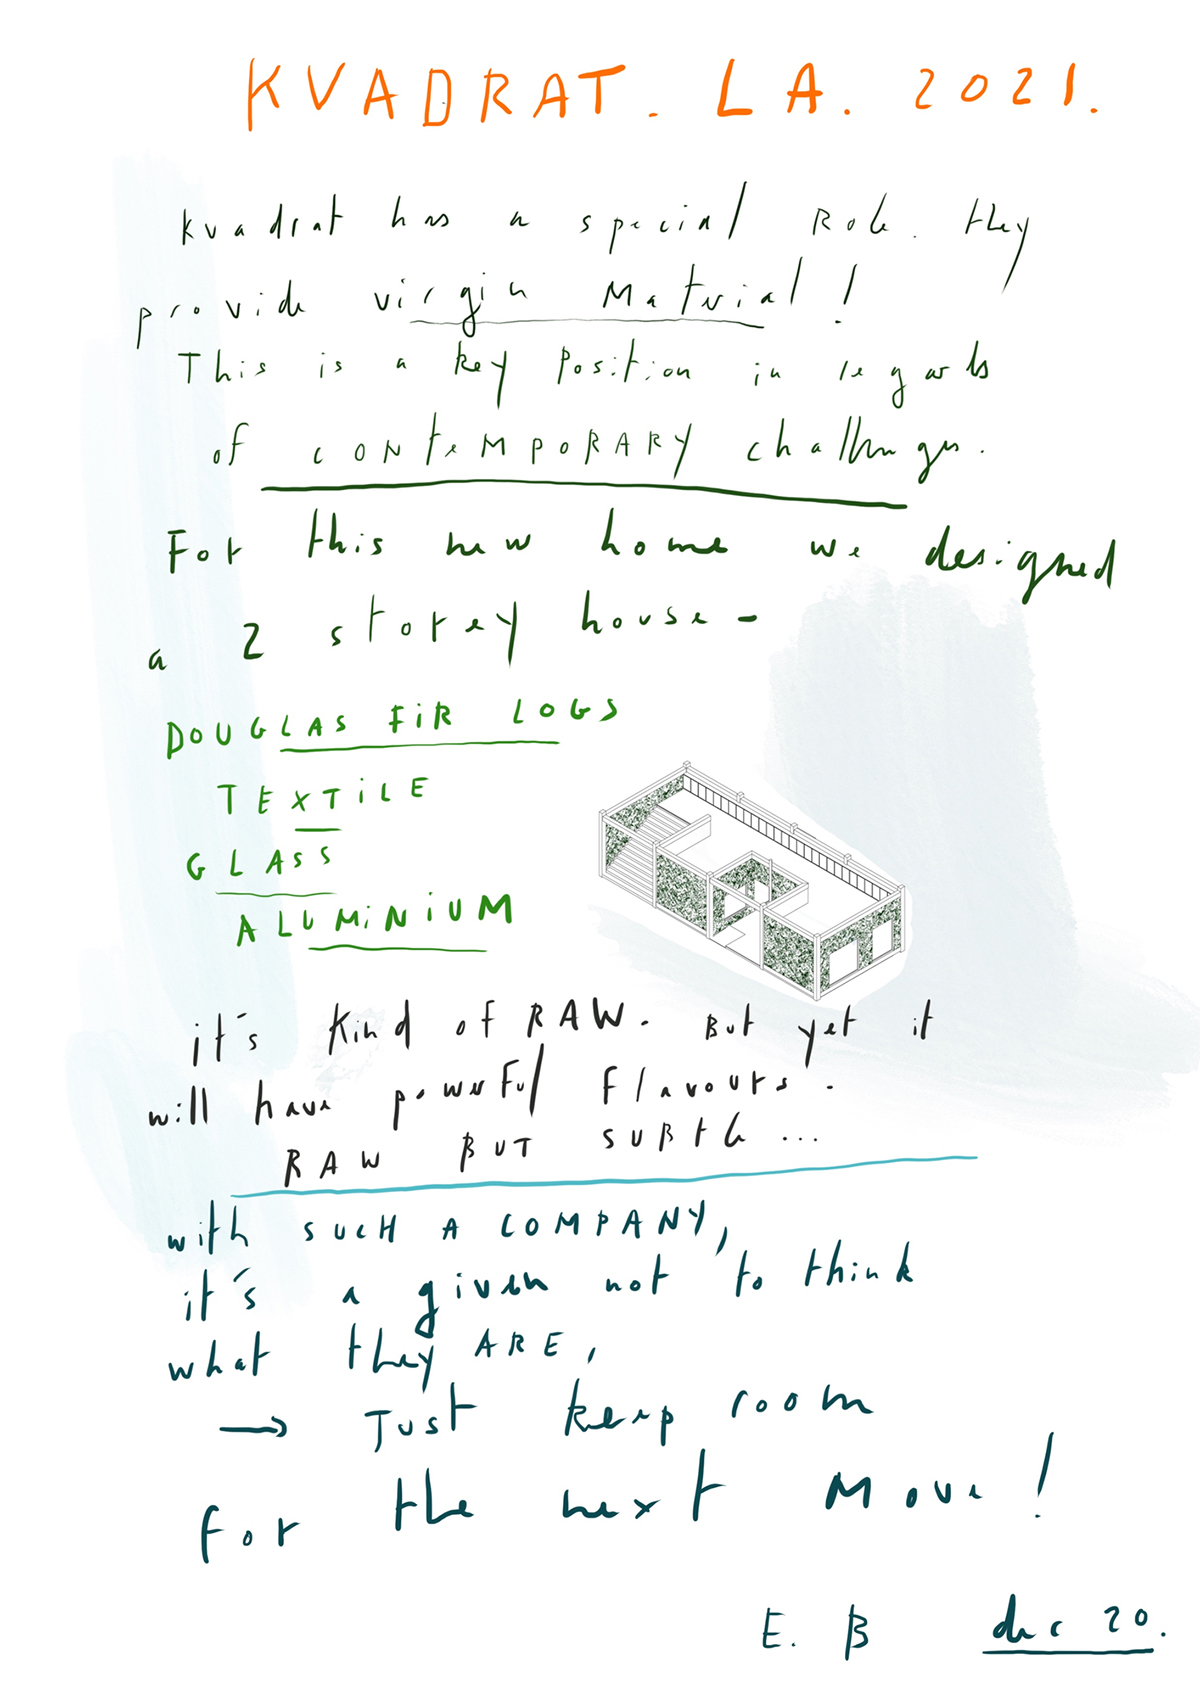 KVADRAT. LA. 2021.
kvadrat has a special Role. they
provide virgin Material!
This is a key Position in regards
of CONTEMPORARY challenges.
For this new home we designed
a 2 storey house-
DOUGLAS FiR LOGS
TEXTiLE
GLASS
ALUMiNiUM
it's kind of RAW. But yet it
will have powerful flavours.
RAW BUT SUBTLE...
with SUCH A COMPANY,
it's a given not to think
what they ARE,
→ Just keep room
for the next Move!
E. B dec 20.